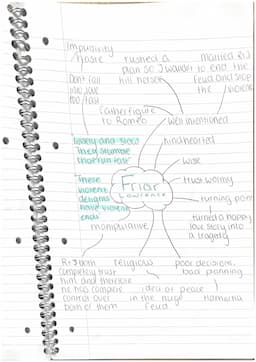 Impulsivity
haste
Don't fall
too fast
rushed a
plan so
married R+J
to end the
feud and stop
the violence
father figure
to Romeo
well intentioned
kindhearted
wise
trustworthy
turning point
turned a happy
love story into
a tragedy
wisely and slow
they stumble
that run fast
These
violent
delights
have violent
ends
Friar
Lawrence
manipulative
R+J both
completely trust
him and therefore
he has complete
control over
both of them
religious
idea of peace
in the huge
feud
poor decisions,
bad planning
Hamartia